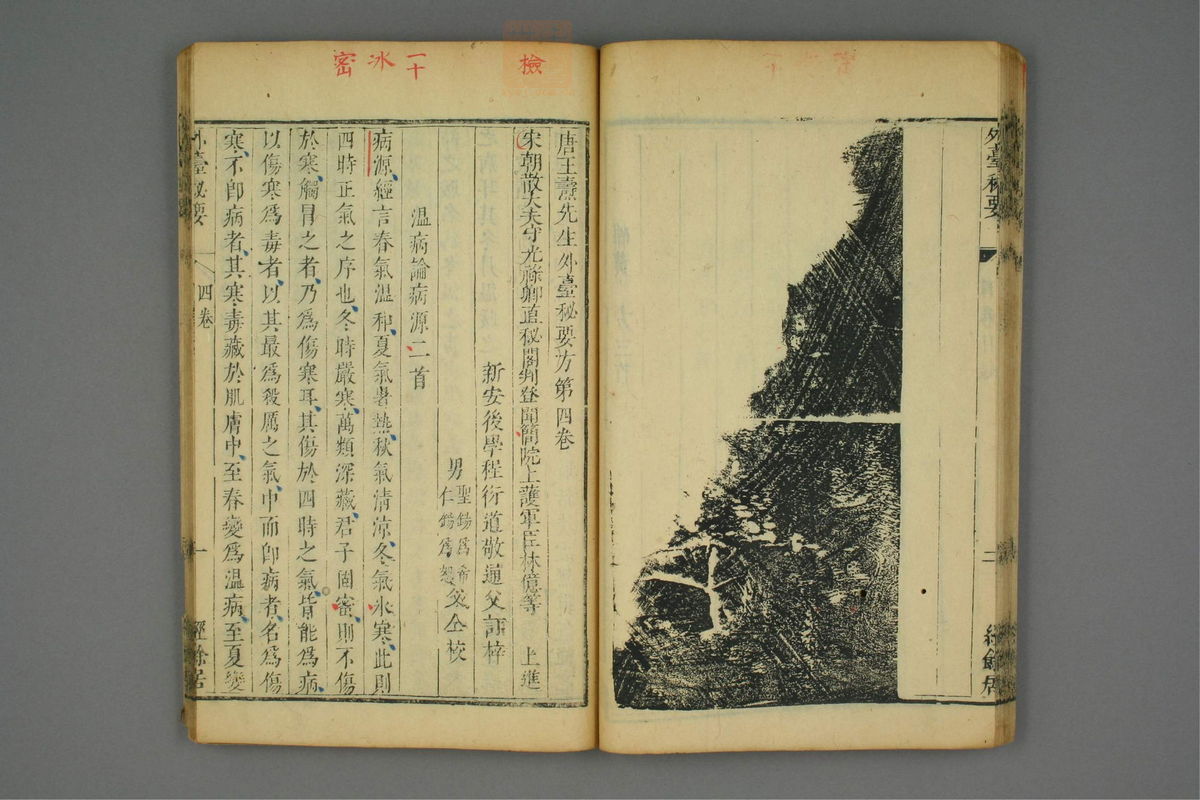 外臺秘要
二
經餘居
檢
一十
冰
密
唐王燾先生外臺秘要方第四卷
宋朝散大夫守光祿卿直秘閣判登聞簡院上護軍臣林億等 上進
新安後學程衍道敬通父訂梓
男 聖鍚為希 仁鍚為恕 父仝校
溫病論病源二首
病源經言春氣溫和夏氣暑熱秋氣清涼冬氣氷寒此則
四時正氣之序也冬時嚴寒萬類深藏君子固密則不傷
於寒觸冒之者乃爲傷寒耳其傷於四時之氣皆能爲病
以傷寒爲毒者以其最爲殺厲之氣中而卽病者名爲傷
寒不卽病者其寒毒藏於肌膚中至春變爲溫病至夏變
外臺秘要
四卷
一
經餘居